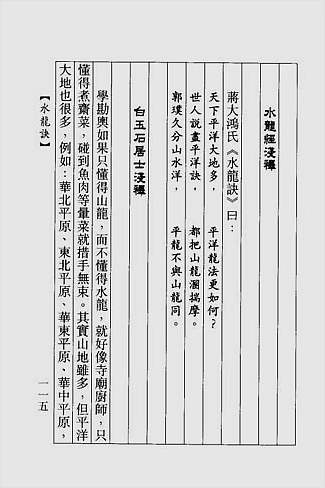 水龍經淺釋
蔣大鴻氏《水龍訣》曰：
天下平洋大地多，　平洋龍法更如何？
世人說盡平洋訣，　都把山龍溷揣摩。
郭璞久分山水洋，　平龍不與山龍同。
白玉石居士淺釋
學勘輿如果只懂得山龍，而不懂得水龍，就好像寺廟廚師，只
懂得煮齋菜，碰到魚肉等暈菜就措手無束。其實山地雖多，但平洋
大地也很多，例如：華北平原、東北平原、華東平原、華中平原，
【水龍訣】
一一五